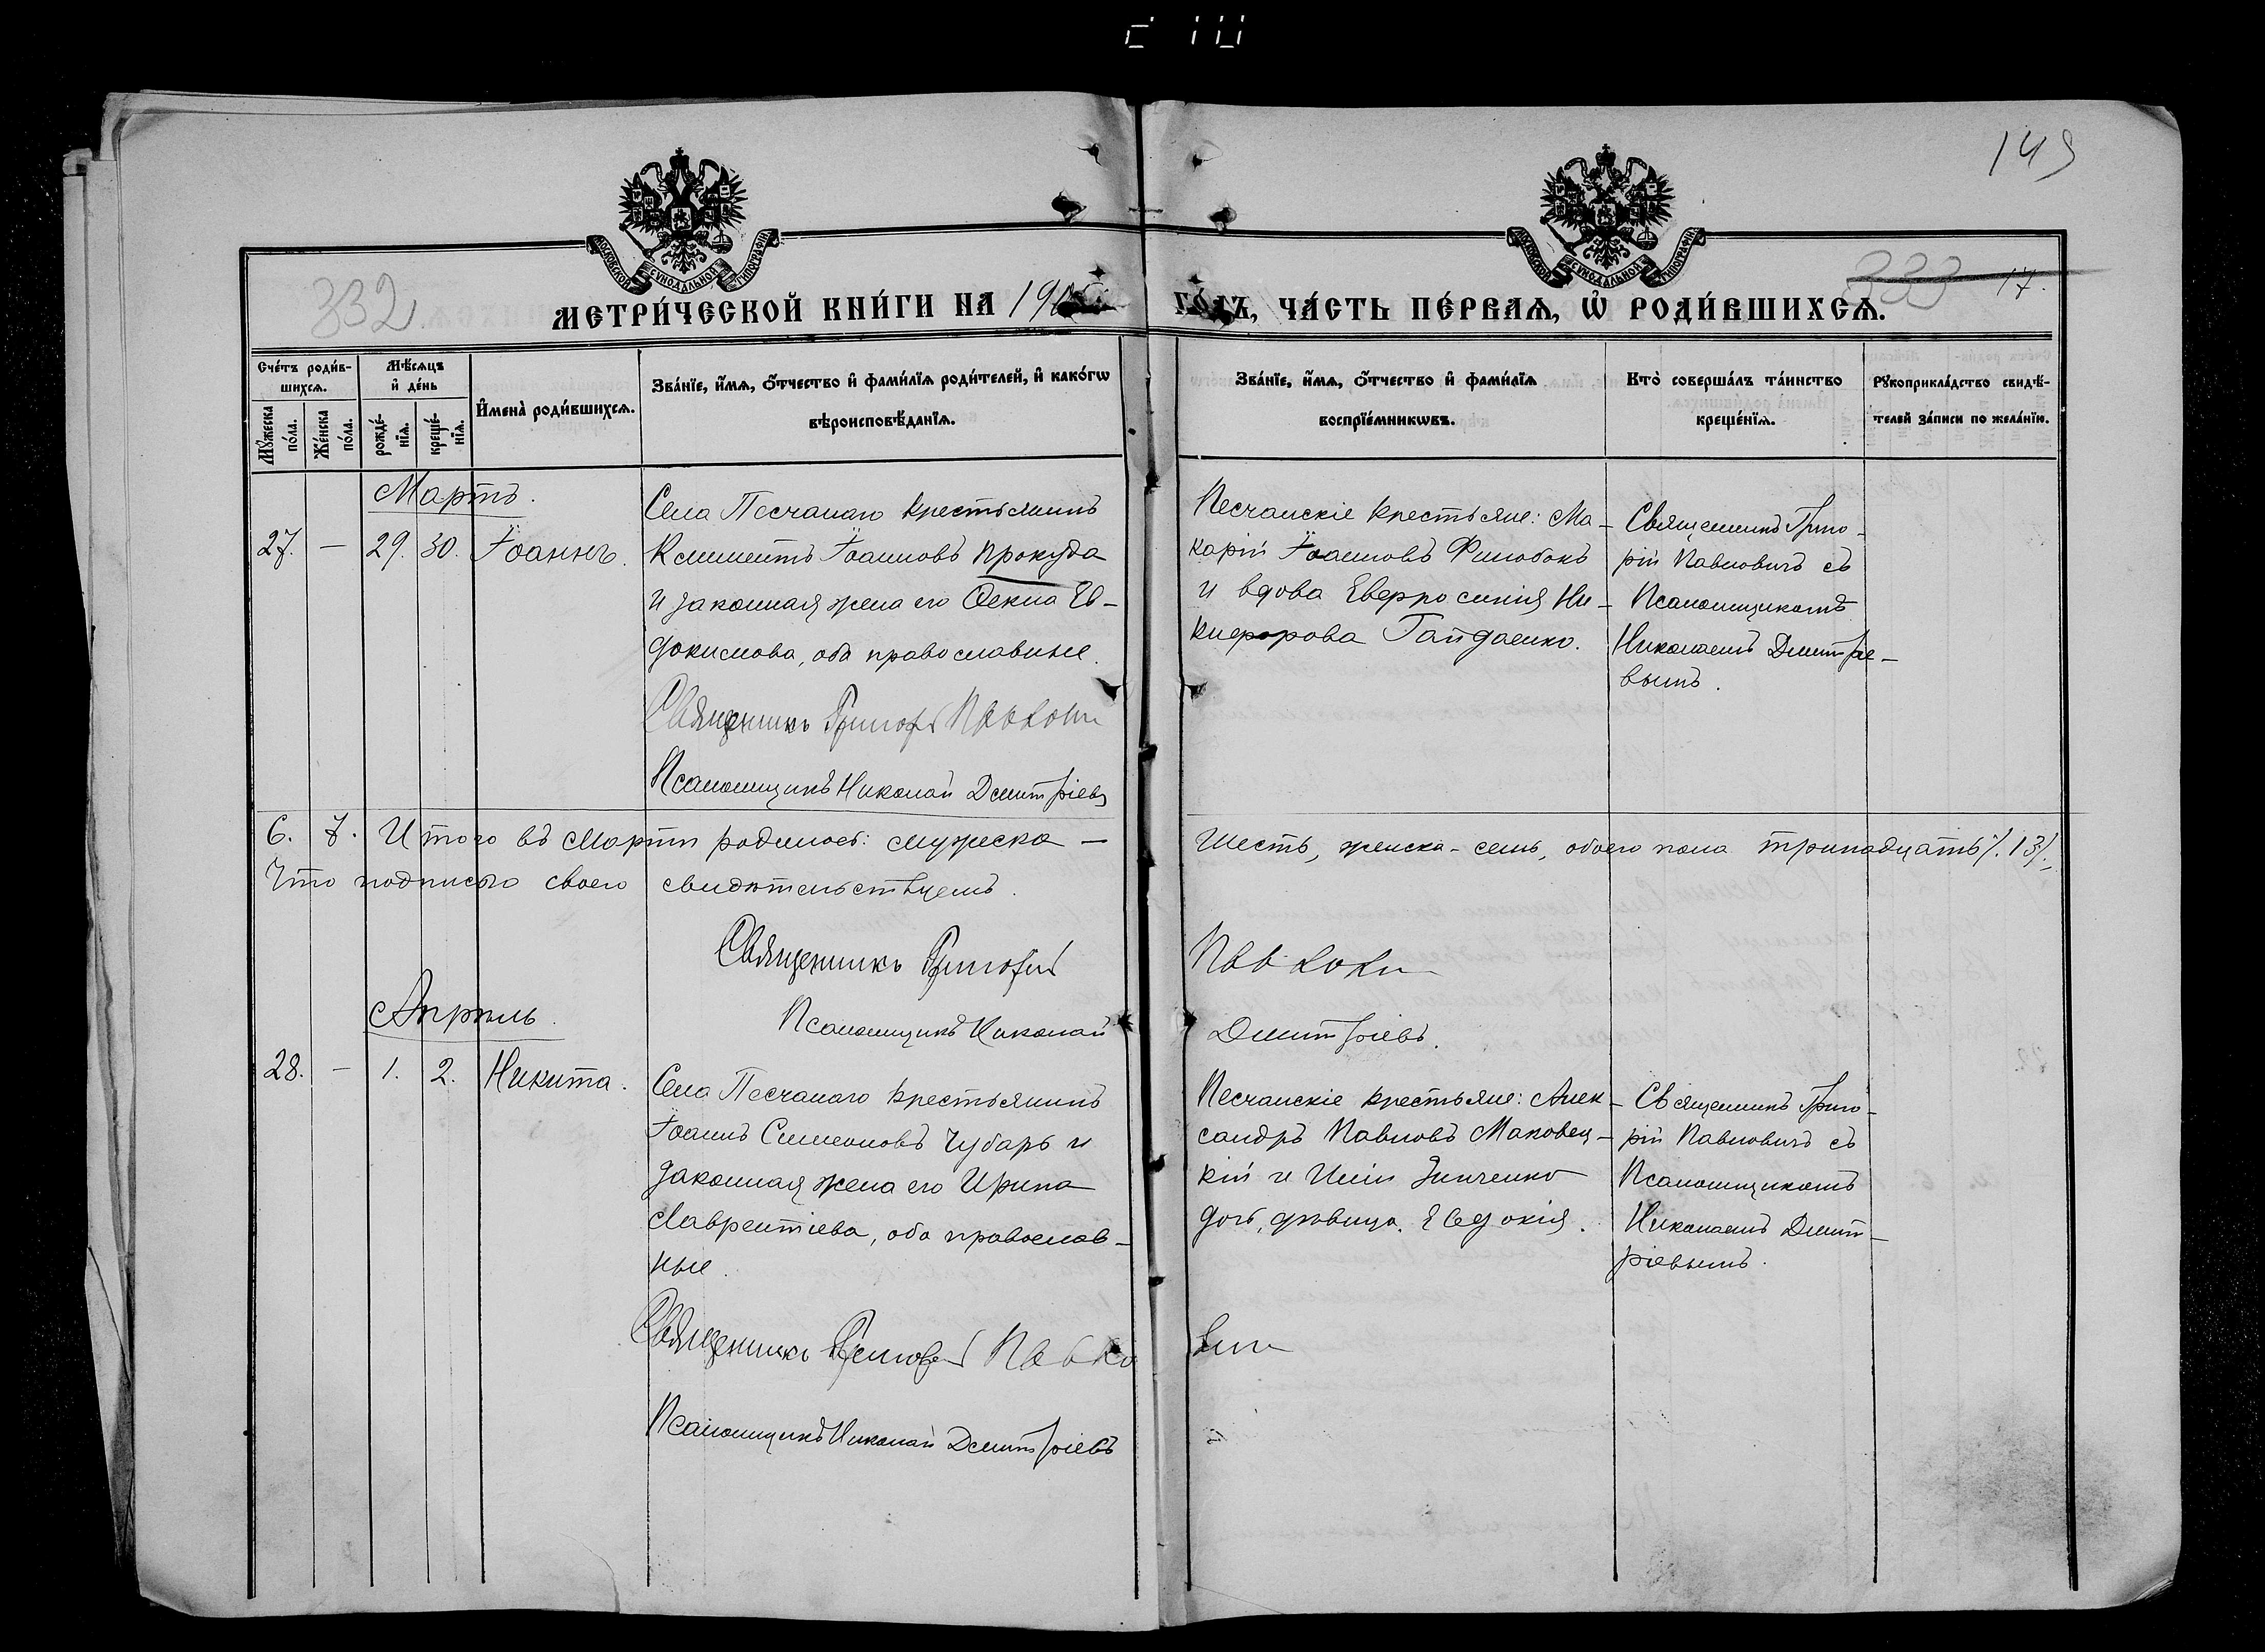 149
МОСКОВСКОЙ СѴНОДАЛЬНОЙ ТИПОГРАФІИ
МОСКОВСКОЙ СѴНОДАЛЬНОЙ ТИПОГРАФІИ
332
333 17.
МЕТРИ́ЧЕСКОЙ КНИ́ГИ НА 190
ГО́ДЪ, ЧА́СТЬ ПЕ́РВАѦ, Ѡ҆ РОДИ́ВШИХСѦ.
Сче́тъ роди́в-
шихсѧ.
Мѹ́жеска по́ла.
Же́нска по́ла.
Мѣ́сѧцъ
и҆ де́нь
рожде́-
нїѧ.
креще́-
нїѧ.
И҆мена̀ роди́вшихсѧ.
Зва́нїе, и҆́мѧ, ѻ҆́тчество и҆ фами́лїѧ роди́телей, и҆ како́гѡ
вѣроисповѣ́данїѧ.
Зва́нїе, и҆́мѧ, ѻ҆́тчество и҆ фами́лїѧ
воспрїе́мникѡвъ.
Кто̀ соверша́лъ та́инство
креще́нїѧ.
Рꙋкоприкла́дство свидѣ́-
телей за́писи по жела́нїю.
Мартъ.
27. — 29. 30. Іоаннъ.
Села Песчанаго крестьянинъ
Климентъ Іоанновъ Прокуда
и законная жена его Ѳекла Ев-
докимова, оба православные.
Священникъ Григорій Павлович
Псаломщикъ Николай Дмитріевъ
Песчанскіе крестьяне: Ма-
карій Іоанновъ Филобокъ
и вдова Евфросинія Ни-
кифорова Гайдаенко.
Священникъ Григо-
рій Павловичъ съ
Псаломщикомъ
Николаемъ Дмитріе-
вымъ.
6. 7. Итого въ Мартѣ родилось: мужеска —
шесть, женска - семь, обоего пола тринадцать /.13/.
Что подписью своею свидѣтельствуемъ.
Священникъ Григорій
Павлович
Псаломщикъ Николай
Дмитріевъ.
Апрѣль.
28. — 1. 2. Никита.
Села Песчанаго крестьянинъ
Іоаннъ Симеоновъ Чубаръ и
законная жена его Ирина
Лаврентіева, оба православ-
ные.
Священникъ Григорій Павло
вич
Псаломщикъ Николай Дмитріевъ
Песчанскіе крестьяне: Алек-
сандръ Павловъ Маковец-
кій и Иліи Зинченко
дочь, дѣвица Евдокія.
Священникъ Григо-
рій Павловичъ съ
Псаломщикомъ
Николаемъ Дмит-
ріевымъ.